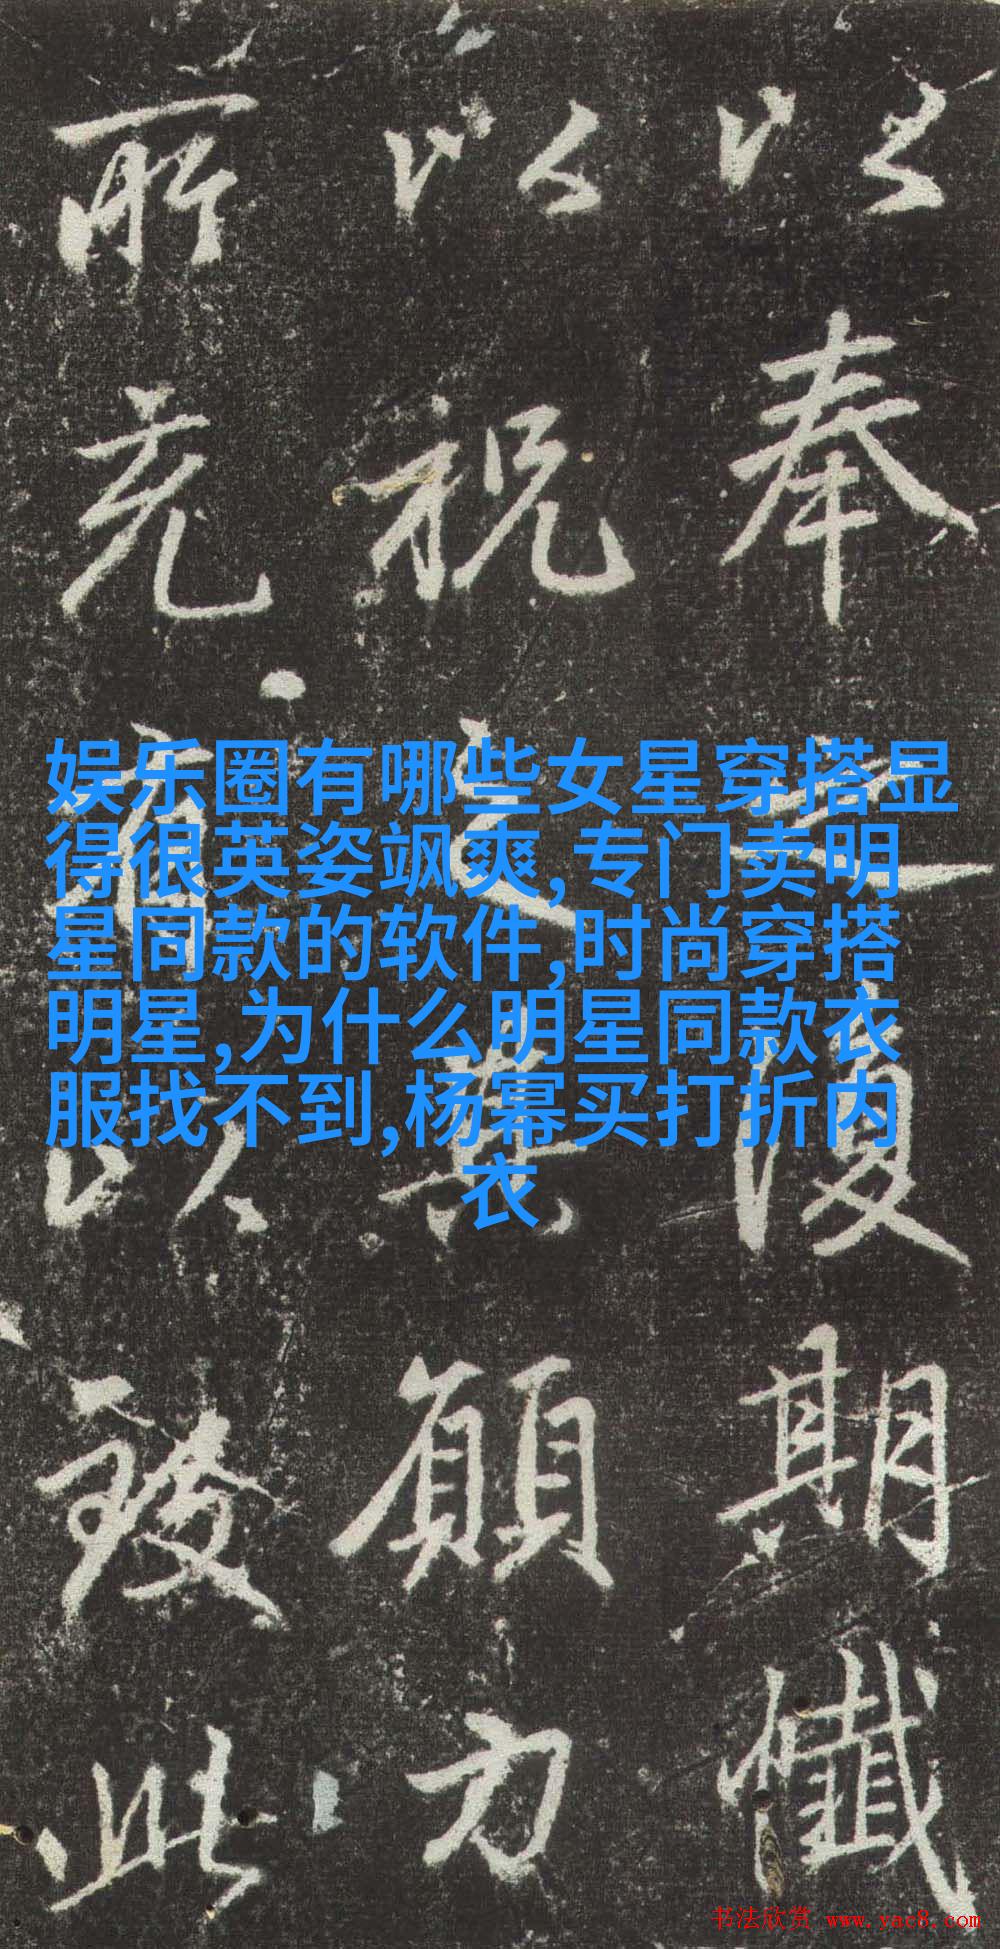 娱乐圈有哪些女星穿搭显
得很英姿飒爽,专门卖明
星同款的软件,时尚穿搭
明星,为什么明星同款衣
服找不到,杨幂买打折内
衣
以奉復期懺
以祝願力
所充以此
书法欣赏 www.yac8.com